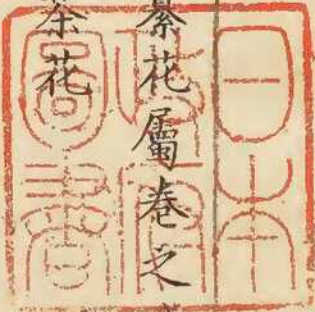 纂花屬卷之
茶花
日本
政府
圖書